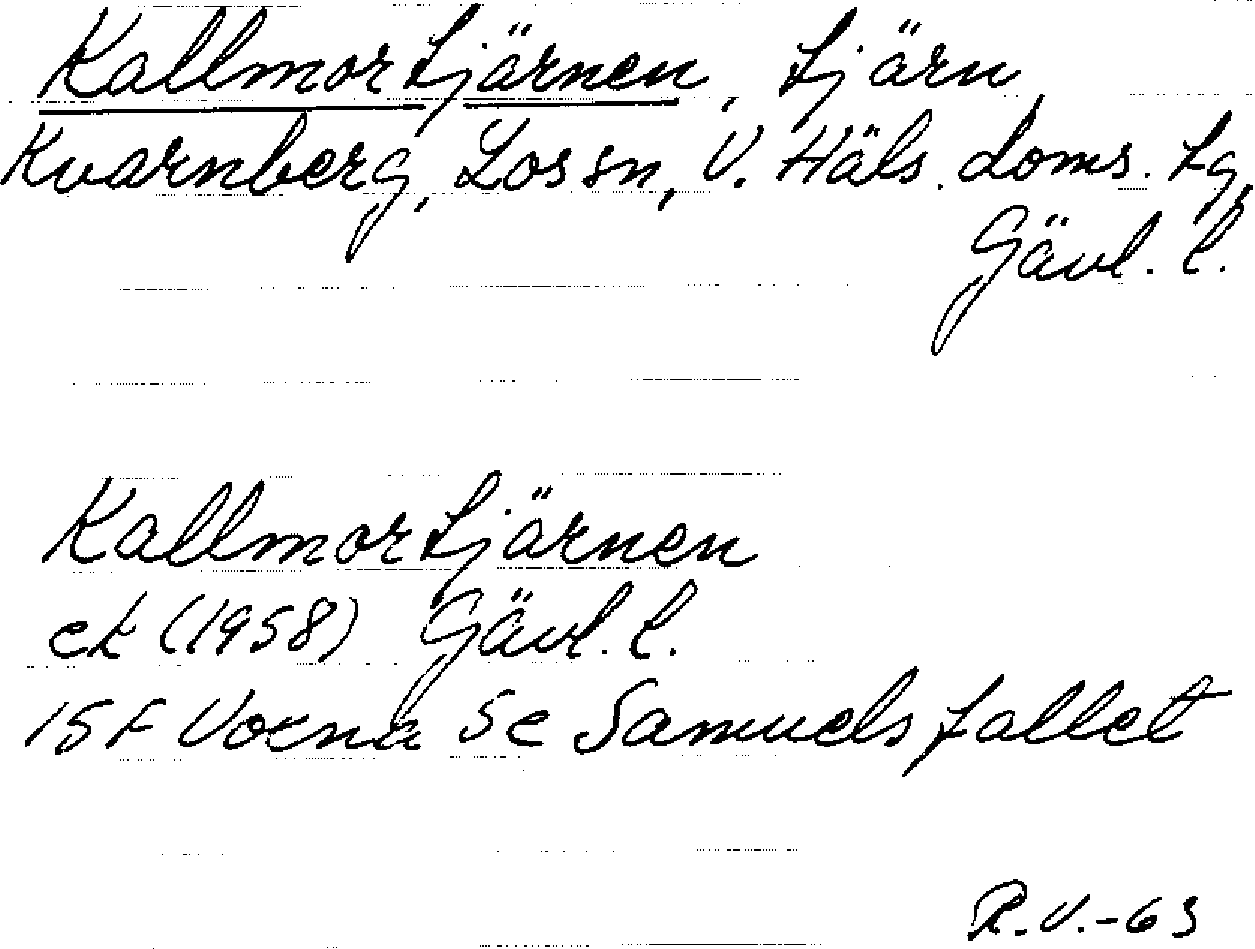 Kallmortjärnen, tjärn,
Kvarnberg, Los sn, V. Häls. doms. tg,
Gävl. l.
Kallmortjärnen
ek (1958) Gävl. l.
15F Voxna 5e Samuelsfallet
R.V.-63